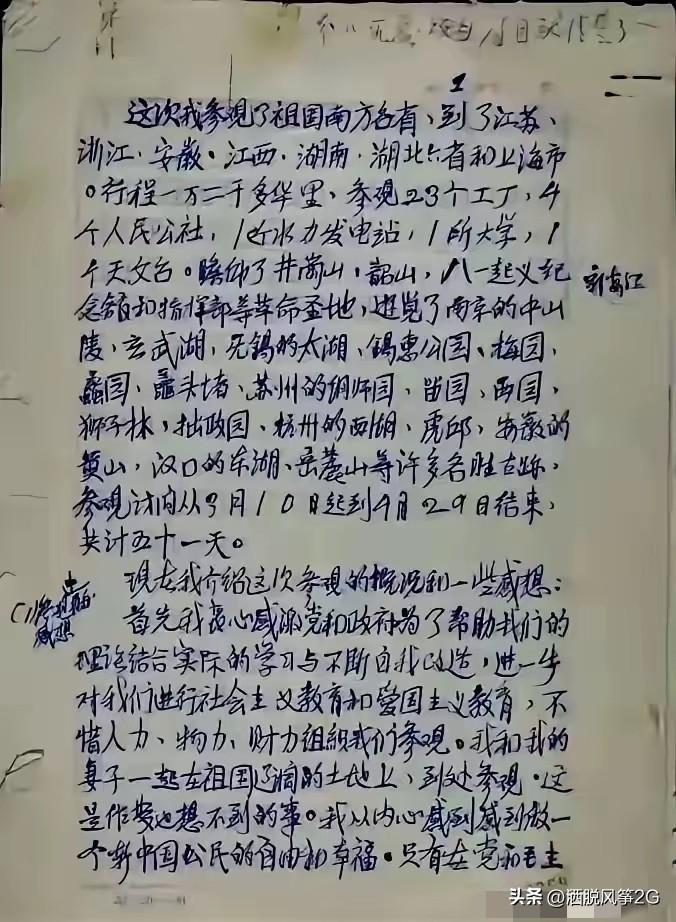 1
这次我参观了祖国南方各省、到了江苏、
浙江·安徽·江西·湖南·湖北六省和上海市
。行程一万二千多华里、参观23个工厂,4
个人民公社,1处水力发电站,1所大学,1
个天文台。瞻仰了井岗山,韶山,八一起义纪
念馆和指挥部等革命圣地,遊览了南京的中山
陵,玄武湖,无锡的太湖、锡惠公园、梅园,
蠡园、黿头渚、苏州的网师园,留园,西园,
狮子林,拙政园、杭州的西湖,虎邱,安徽的
黄山,汉口的东湖、岳麓山等许多名胜古跡,
参观时间从3月10日起到4月29日结束,
共计五十一天。
现在我介绍这次参观的概况和一些感想:
首先我衷心感谢党和政府为了帮助我们的
理论结合实际的学习与不断自我改造,进一步
对我们进行社会主义教育和爱国主义教育,不
惜人力、物力、财力组织我们参观。我和我的
妻子一起在祖国辽阔的土地上、到处参观·这
是作梦也想不到的事。我从内心感到感到做一
个新中国公民的自由和幸福。只有在党和毛主
新安江
感想
头条@洒脱风筝2G